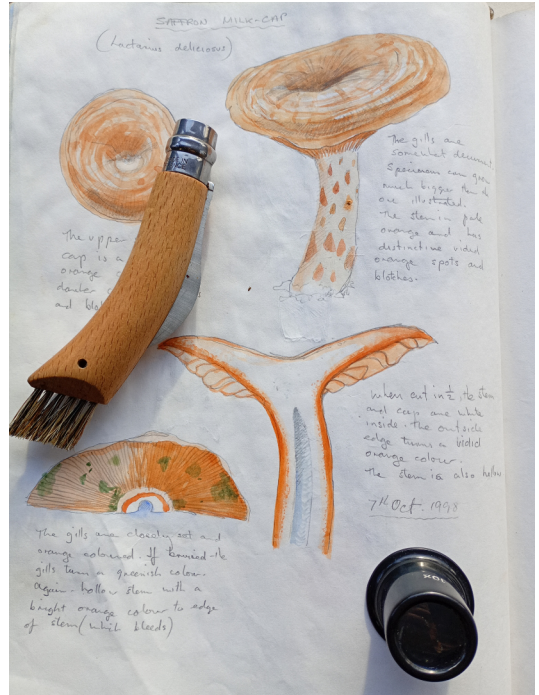 SAFFRON MILK-CAP
(Lactarius deliciosus)
The gills are
somewhat
Specimens can grow
much bigger than
one illustrated.
The stem is pale
orange and has
distinctive vivid
orange spots and
blotches.
The upper
cap is a
orange
and
When cut in ½, the stem
and cap are white
inside. The outside
edge turns a vivid
orange colour.
The stem is also hollow
7th Oct. 1998
The gills are closely set and
orange coloured. If bruised the
gills turn a greenish colour.
Again hollow stem with a
bright orange colour to edge
of stem (which bleeds)
10X